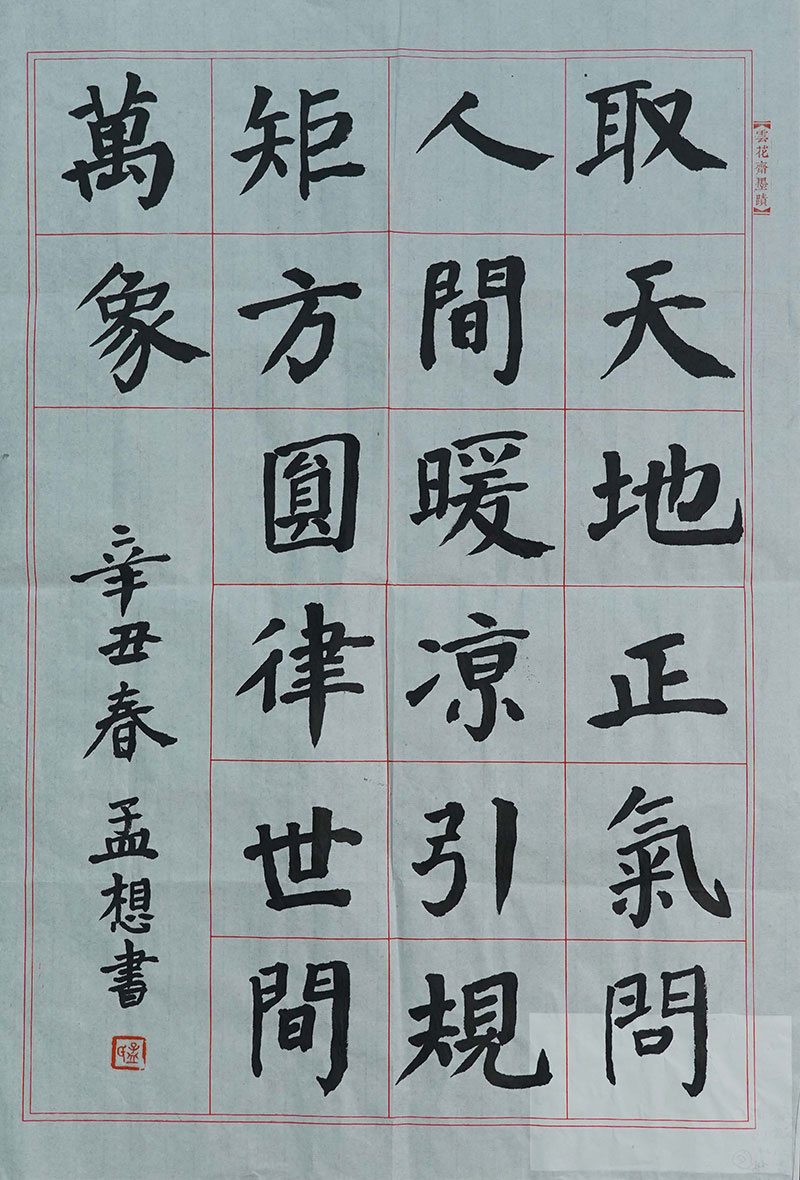 取天地正氣問
人間暖凉引規
矩方圓律世間
萬象
辛丑春 孟想書
【雲花齋墨蹟】